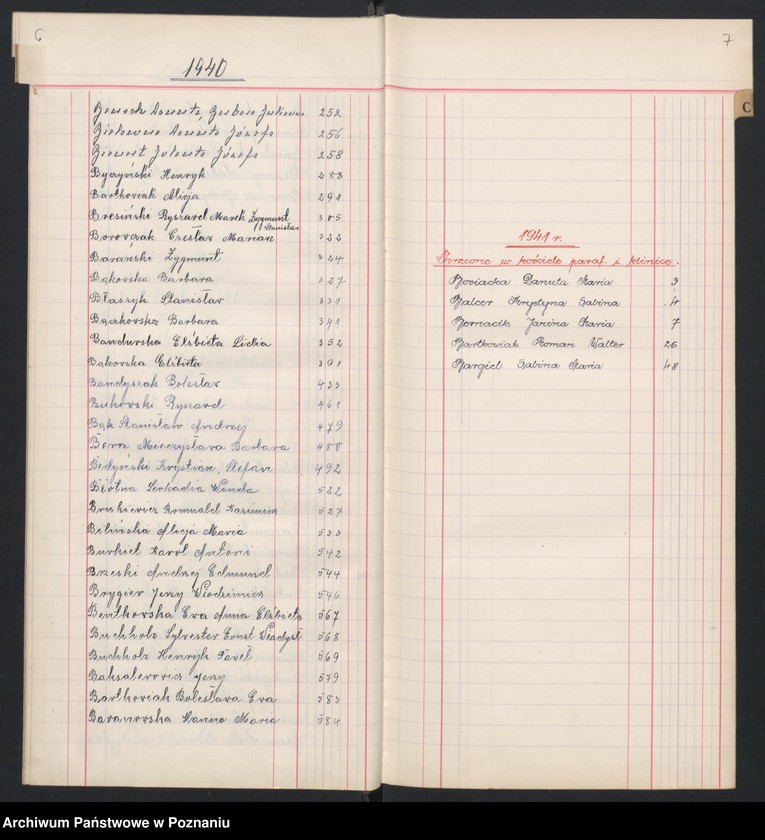 6
1940
Danuta, Barbara Julianna 252
Danuta Józefa 256
Jolanta Józefa 258
Byczyński Henryk 288
Bartkowiak Alicja 291
Bresiński Ryszard Marek Zygmunt Stanisław 305
Borowczak Czesław Marian 322
Barański Zygmunt 324
Bąkowska Barbara 327
Błaszyk Stanisław 331
Bączkowska Barbara 341
Bandurska Elżbieta Lidia 352
Bąkowska Elżbieta 391
Bandyszak Bolesław 433
Bukowski Ryszard 461
Bąk Stanisław Andrzej 479
Bera Mieczysława Barbara 480
Bedyński Krystian, Stefan 492
Błotna Leokadia Wanda 522
Romuald Kazimierz 527
Bilińska Alicja Maria 533
Burkiet Karol Antoni 542
Brzeski Andrzej Edmund 544
Brygier Jerzy Włodzimierz 546
Bentkowska Ewa Anna Elżbieta 567
Buchholz Sylwester Ernst Władysł 568
Buchholz Henryk Paweł 569
Baksalerowicz Jerzy 579
Bartkowiak Bolesława Ewa 583
Baranowska Hanna Maria 584
7
C
1941 r.
Chrzcone w kościele paraf. i klinice.
Bosiacka Danuta Maria 3
Balcer Krystyna Sabina 4
Biernacik Janina Maria 7
Bartkowiak Roman Walter 26
Bargiel Sabina Maria 48
Archiwum Państwowe w Poznaniu